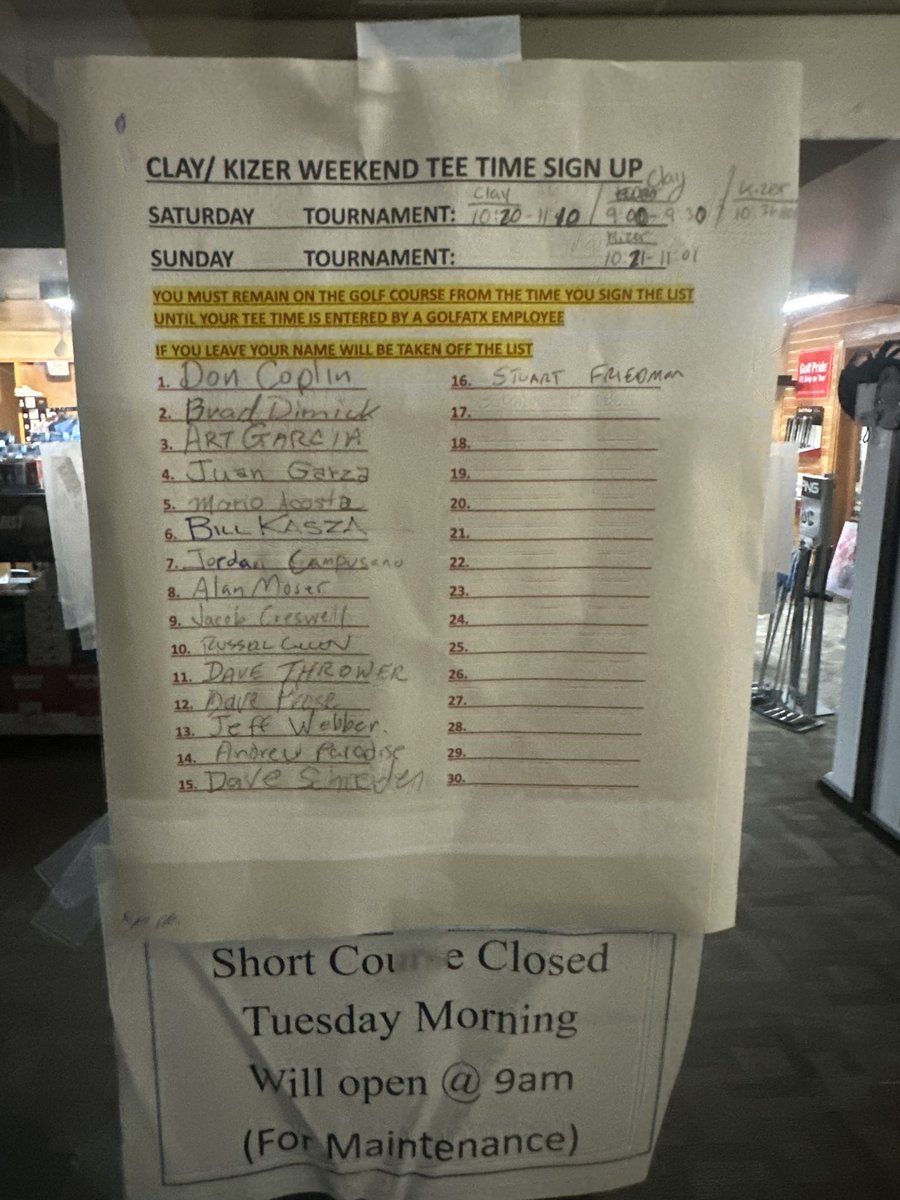 CLAY/ KIZER WEEKEND TEE TIME SIGN UP
Clay Clay Kizer
SATURDAY TOURNAMENT: 10:20-11:10 / 9:00-9:30 / 10:31
Kizer
SUNDAY TOURNAMENT: 10:21-11:01
YOU MUST REMAIN ON THE GOLF COURSE FROM THE TIME YOU SIGN THE LIST
UNTIL YOUR TEE TIME IS ENTERED BY A GOLFATX EMPLOYEE
IF YOU LEAVE YOUR NAME WILL BE TAKEN OFF THE LIST
1. Don Coplin
2. Brad Dimick
3. ART GARCIA
4. Juan Garza
5. Mario Acosta
6. BILL KASZA
7. Jordan Campusano
8. Alan Moser
9. Jacob Creswell
10. RUSSELL
11. DAVE THROWER
12. Dave Prose
13. Jeff Webber.
14. Andrew Paradise
15. Dave
16. STUART FRIEDMAN
17.
18.
19.
20.
21.
22.
23.
24.
25.
26.
27.
28.
29.
30.
Short Course Closed
Tuesday Morning
Will open @ 9am
(For Maintenance)
Golf Pride
PING